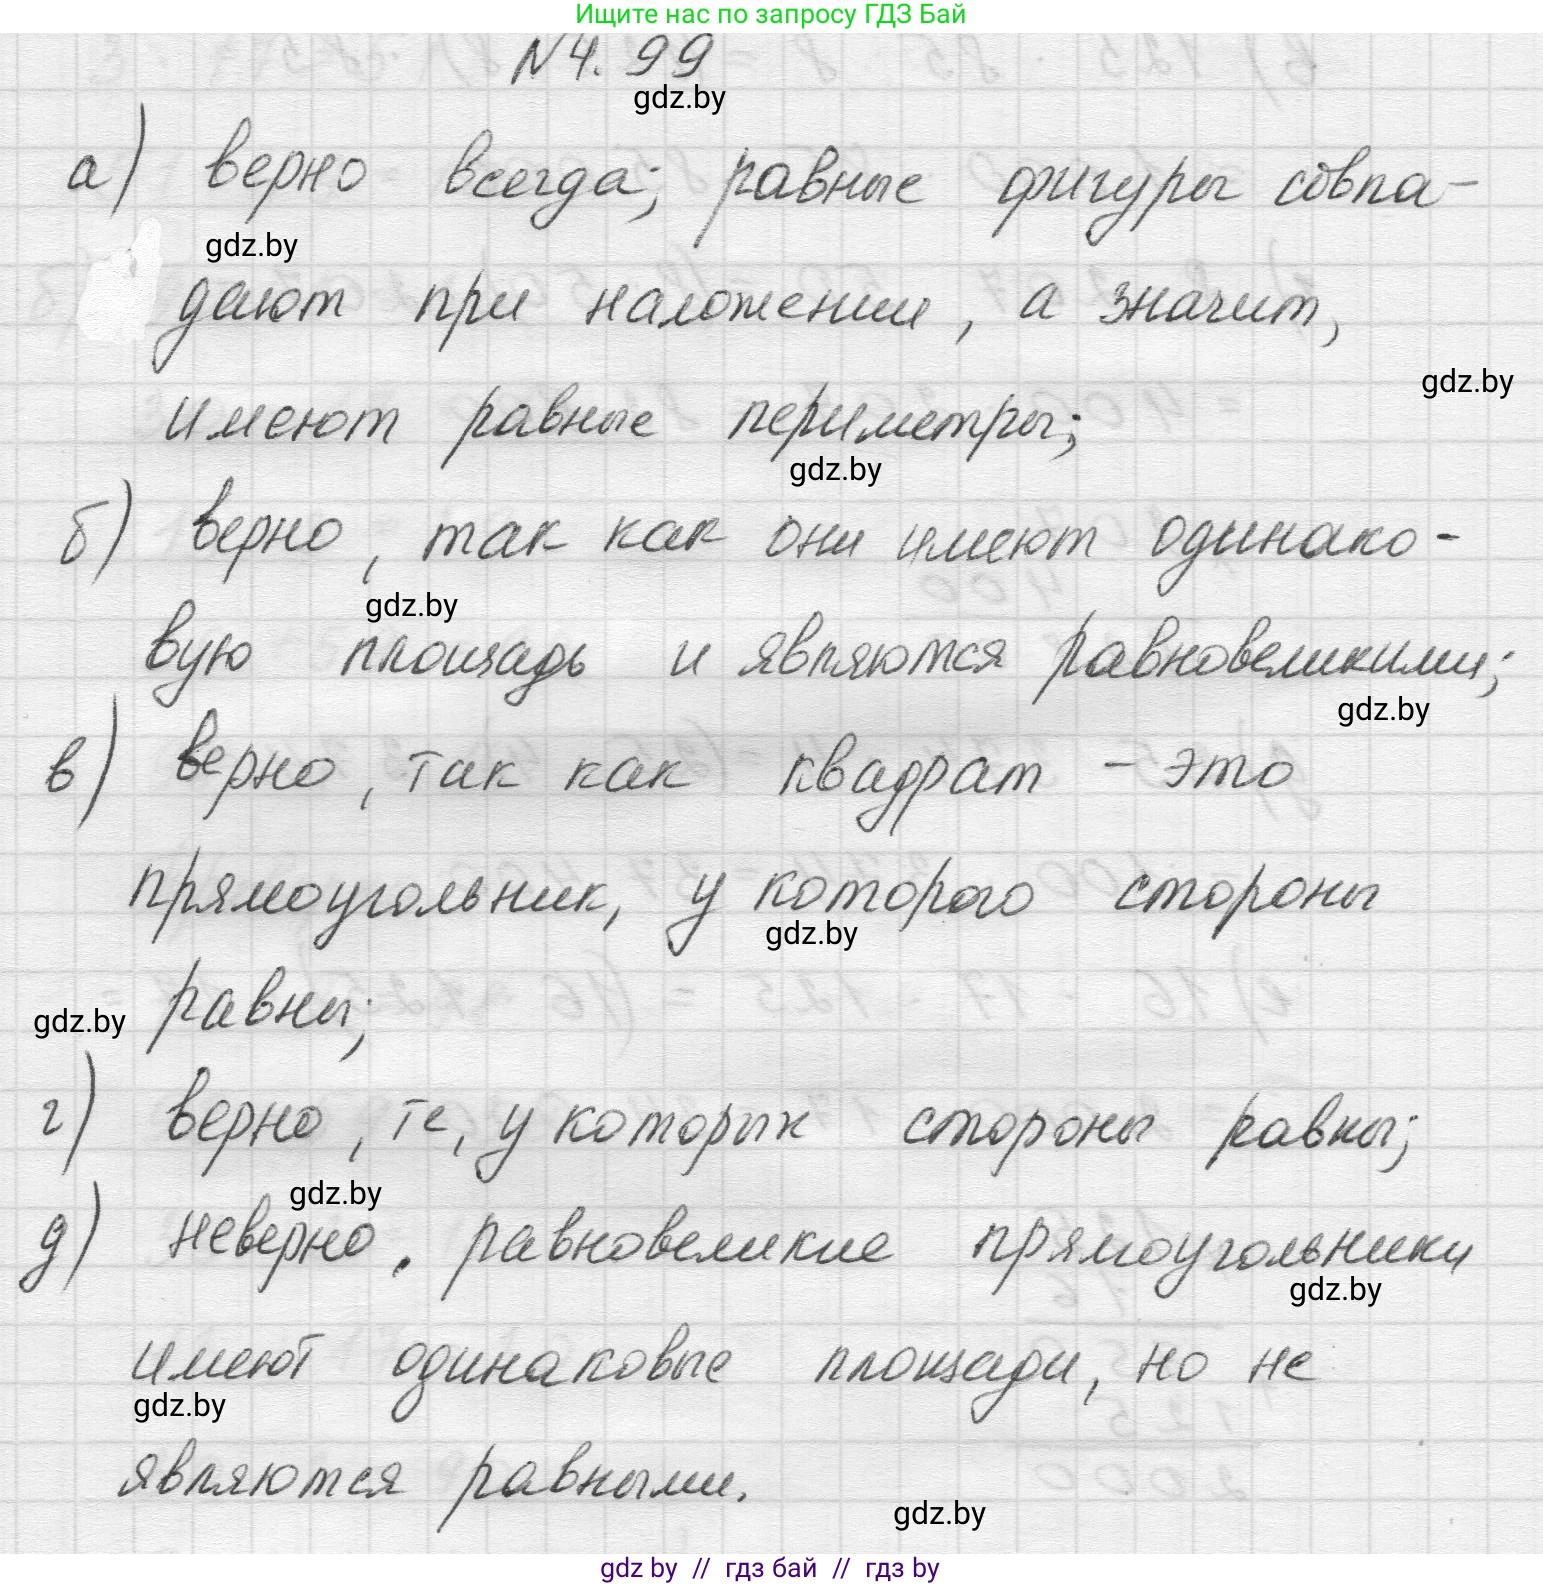 Ищите нас по запросу ГДЗ Бай
№4.99
gdz.by
а) верно всегда; равные фигуры совпа-
gdz.by
дают при наложении, а значит,
gdz.by
имеют равные периметры;
gdz.by
б) верно, так как они имеют одинако-
gdz.by
вую площадь и являются равновеликими;
gdz.by
в) верно, так как квадрат - это
прямоугольник, у которого стороны
gdz.by
gdz.by равны;
г) верно, те, у которых стороны равны;
gdz.by
д) неверно. равновеликие прямоугольники
gdz.by
имеют одинаковые площади, но не
gdz.by
являются равными.
gdz.by
gdz by // гдз бай // гдз by